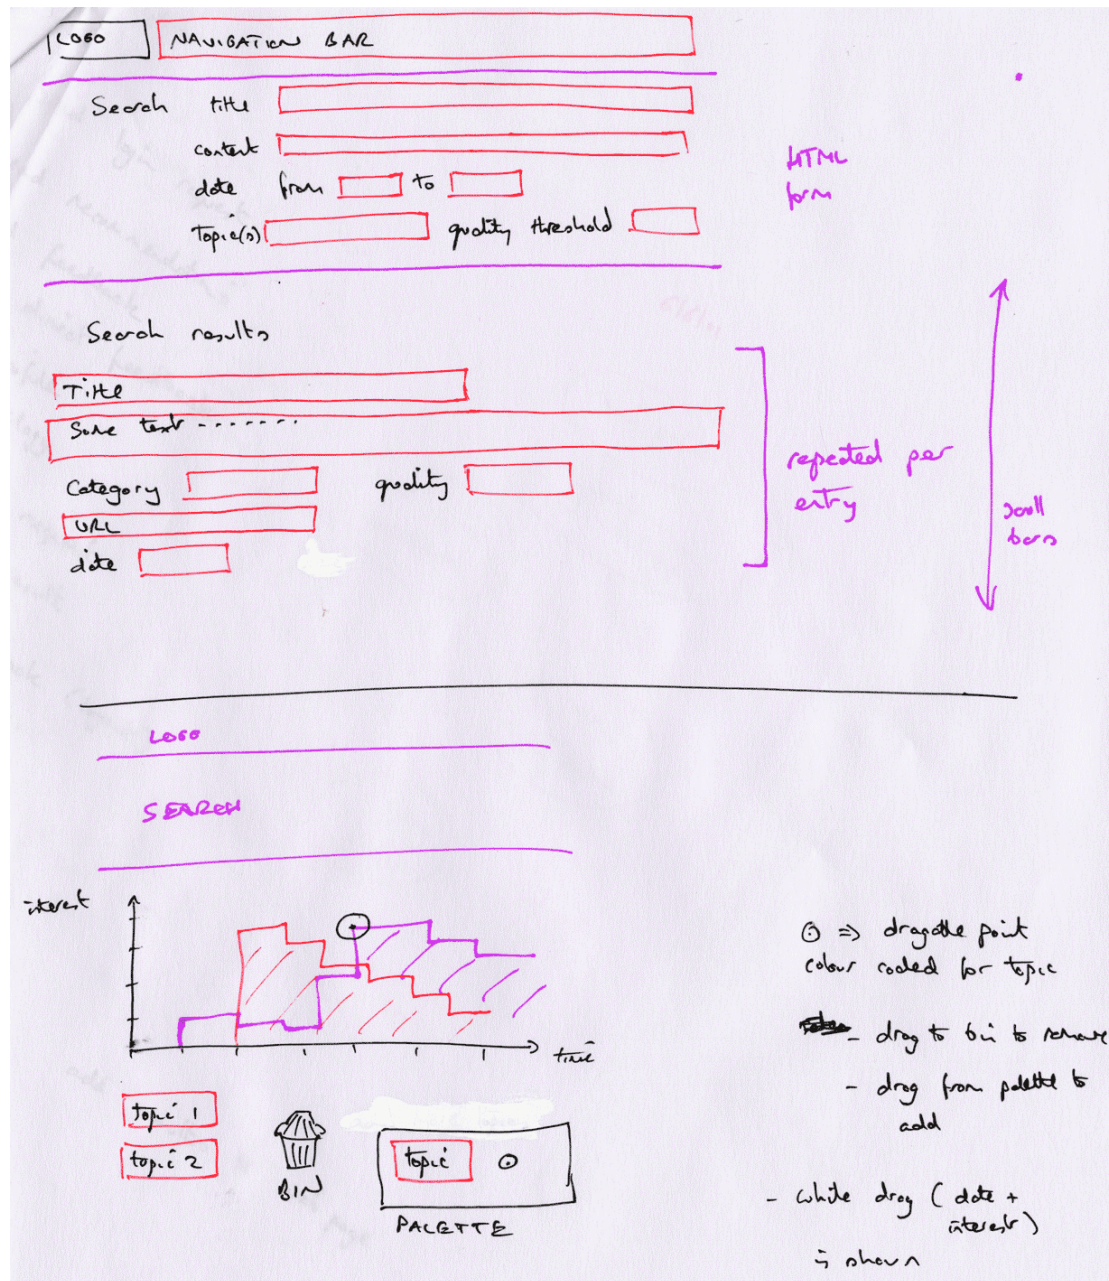 LOGO NAVIGATION BAR
Search title
content
date from to
Topic(s) quality threshold
HTML
form
Search results
Title
Some text - - - - - - -
Category quality
URL
date
repeated per
entry
scroll
bars
LOGO
SEARCH
interest
time
topic 1
topic 2
BIN
topic
PALETTE
⊙ ⇒ dragable point
colour coded for topic
- drag to bin to remove
- drag from palette to
add
- while drag (date +
interest)
is shown